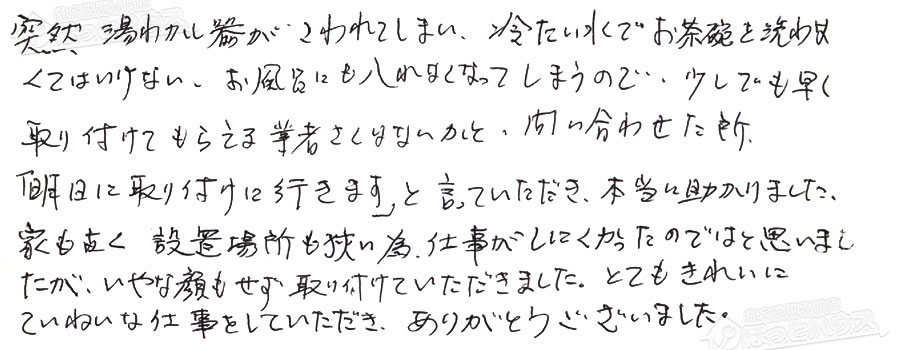 突然 湯わかし器がこわれてしまい、冷たい水でお茶碗を洗わな
くてはいけない、お風呂にも入れなくなってしまうので、少しでも早く
取り付けてもらえる業者さんはないかと、問い合わせた所、
「明日に取り付けに行きます」と言っていただき、本当に助かりました、
家も古く 設置場所も狭い為、仕事がしにくかったのではと思いまし
たが、いやな顔もせず取り付けていただきました。とてもきれいに
ていねいな仕事をしていただき、ありがとうございました。